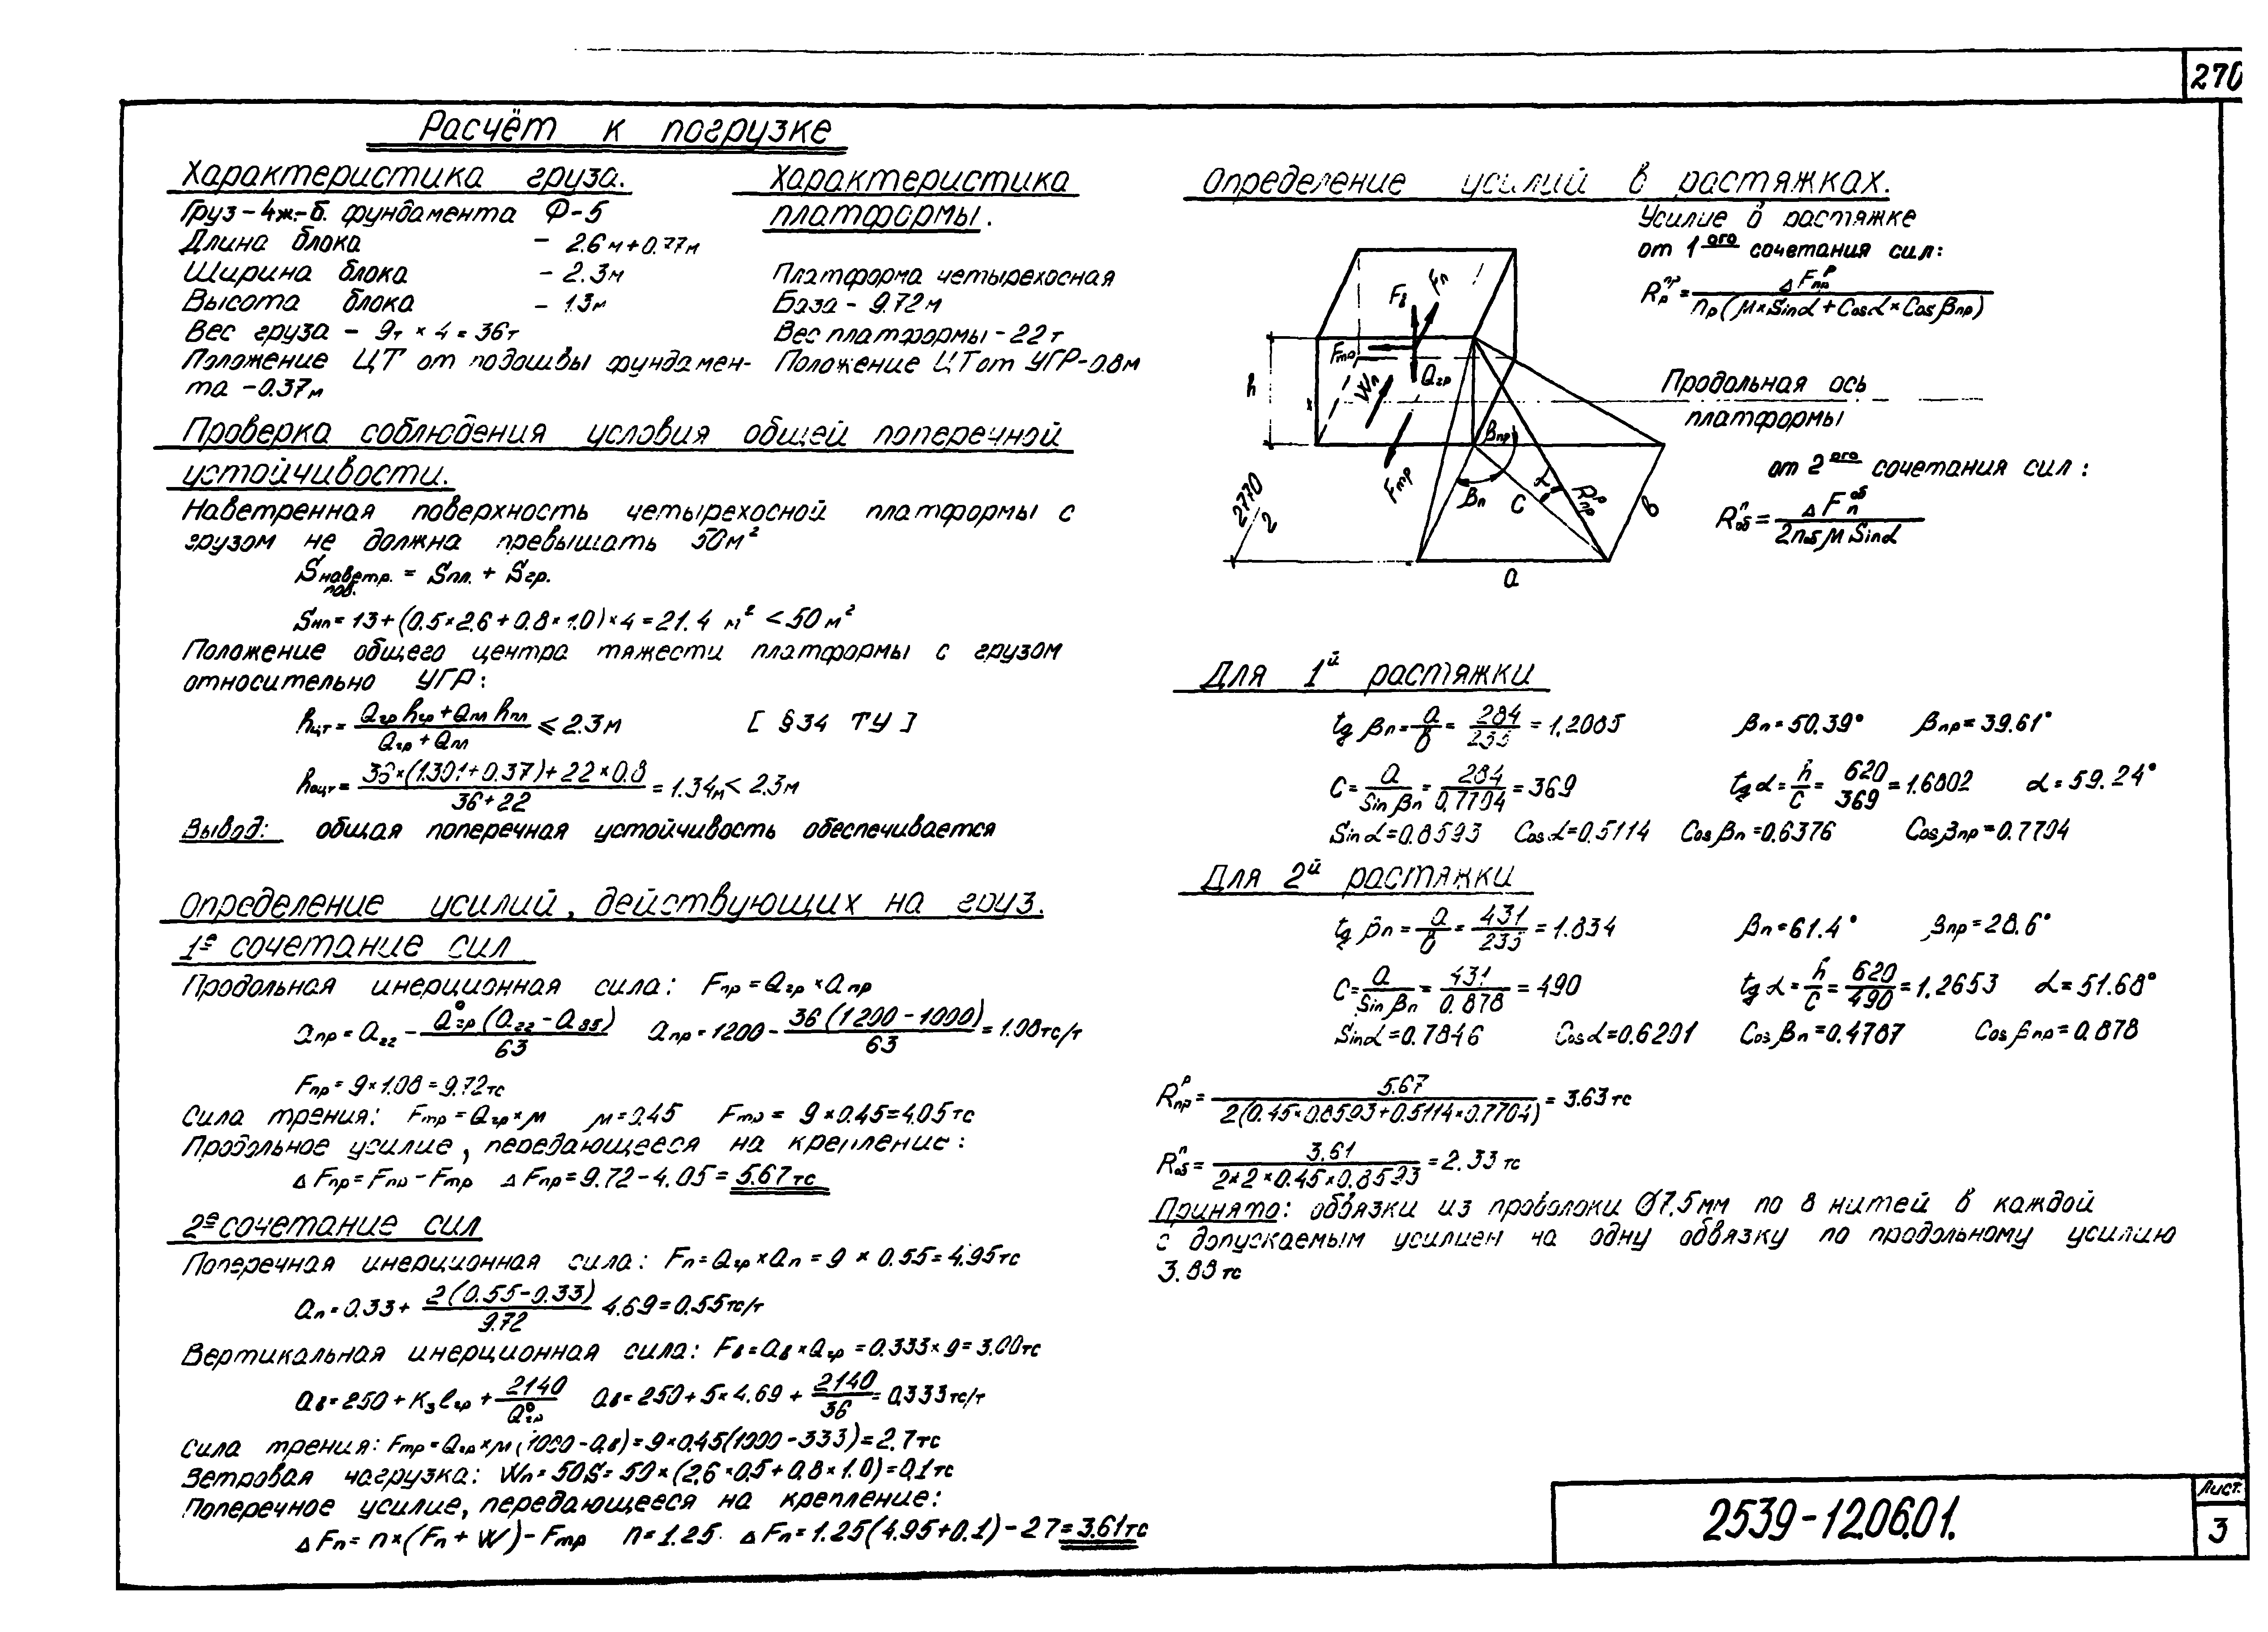 270
Расчёт к погрузке
Характеристика груза.
Груз – 4 ж.-б. фундамента Ф-5
Длина блока – 2.6м+0.77м
Ширина блока – 2.3м
Высота блока – 1.3м
Вес груза – 9т × 4 = 36т
Положение ЦТ от подошвы фундамен-
та – 0.37м
Характеристика
платформы.
Платформа четырехосная
База – 9.72м
Вес платформы – 22т
Положение ЦТ от УГР – 0.8м
Проверка соблюдения условия общей поперечной
устойчивости.
Наветренная поверхность четырехосной платформы с
грузом не должна превышать 50м²
Sнаветр. пов. = Sпл. + Sгр.
Sнп = 13 + (0.5×2.6 + 0.8×1.0)×4 = 21.4 м² < 50м²
Положение общего центра тяжести платформы с грузом
относительно УГР:
hцт = (Qгр hгр + Qпл hпл) / (Qгр + Qпл) ≤ 2.3м [ §34 ТУ ]
hоцт = (36×(1.301+0.37)+22×0.8) / (36+22) = 1.34м < 2.3м
Вывод: общая поперечная устойчивость обеспечивается
Определение усилий, действующих на груз.
1е сочетание сил
Продольная инерционная сила: Fпр = Qгр × aпр
aпр = a22 – Q°гр (a22 – a85) / 63 aпр = 1200 – 36 (1200 – 1000) / 63 = 1.08тс/т
Fпр = 9×1.08 = 9.72тс
Сила трения: Fтр = Qгр × м м = 0.45 Fтр = 9×0.45 = 4.05тс
Продольное усилие, передающееся на крепление:
Δ Fпр = Fпр – Fтр Δ Fпр = 9.72 – 4.05 = 5.67тс
2е сочетание сил
Поперечная инерционная сила: Fп = Qгр × aп = 9 × 0.55 = 4.95тс
aп = 0.33 + 2(0.55 – 0.33) / 9.72 4.69 = 0.55тс/т
Вертикальная инерционная сила: Fв = aв × Qгр = 0.333×9 = 3.00тс
aв = 250 + Kз ℓгр + 2140 / Q°гр aв = 250 + 5×4.69 + 2140 / 36 = 0.333тс/т
Сила трения: Fтр = Qгр × м (1000 – aв) = 9×0.45(1000 – 333) = 2.7тс
Ветровая нагрузка: Wп = 50S = 50×(2.6×0.5 + 0.8×1.0) = 0.1тс
Поперечное усилие, передающееся на крепление:
Δ Fп = n×(Fп + W) – Fтр n = 1.25 Δ Fп = 1.25(4.95+0.1) – 2.7 = 3.61тс
Определение усилий в растяжках.
Усилие в растяжке
от 1ого сочетания сил:
Rпрр = Δ Fпрр / nр(м×Sinα + Cosα×Cosβпр)
Fв
Fп
Fтр
Qгр
Wп
h
Fтр
βпр
βп
C
α
Rпрр
в
a
2770/2
Продольная ось
платформы
от 2ого сочетания сил:
Rпоб = Δ Fпоб / 2nоб м Sinα
Для 1й растяжки
tg βп = a/в = 284/235 = 1.2085 βп = 50.39° βпр = 39.61°
C = a / Sin βп = 284 / 0.7704 = 369 tg α = h/C = 620/369 = 1.6802 α = 59.24°
Sin α = 0.8593 Cos α = 0.5114 Cos βп = 0.6376 Cos βпр = 0.7704
Для 2й растяжки
tg βп = a/в = 431/235 = 1.834 βп = 61.4° βпр = 28.6°
C = a / Sin βп = 431 / 0.878 = 490 tg α = h/C = 620/490 = 1.2653 α = 51.68°
Sin α = 0.7846 Cos α = 0.6201 Cos βп = 0.4787 Cos βпр = 0.878
Rрпр = 5.67 / 2(0.45×0.8593+0.5114×0.7704) = 3.63тс
Rпоб = 3.61 / 2×2×0.45×0.8593 = 2.33тс
Принято: обвязки из проволоки Ø7.5мм по 8 нитей в каждой
с допускаемым усилием на одну обвязку по продольному усилию
3.88тс
2539-12.06.01.
Лист
3